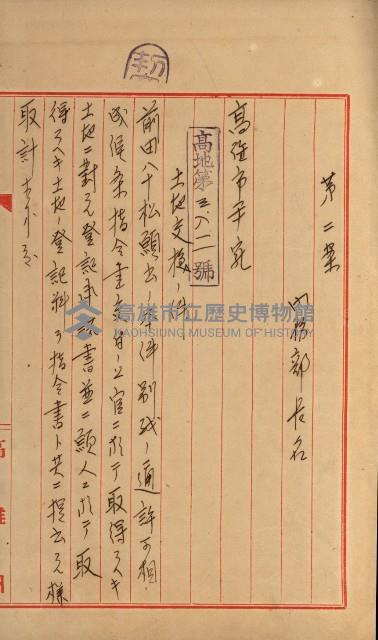 第二案
内務部長名
高雄市尹宛
高地第三八二一號
土地交換ノ件
前田八十松願出ノ件別紙ノ通許可相
成候条指令書交付ノ上官ニ於テ取得スヘキ
土地ニ対スル登記承諾書並ニ願人ニ於テ取
得スヘキ土地ノ登記料ヲ指令書ト共ニ提出スル様
取計
高雄州
高雄市立歷史博物館
KAOHSIUNG MUSEUM OF HISTORY